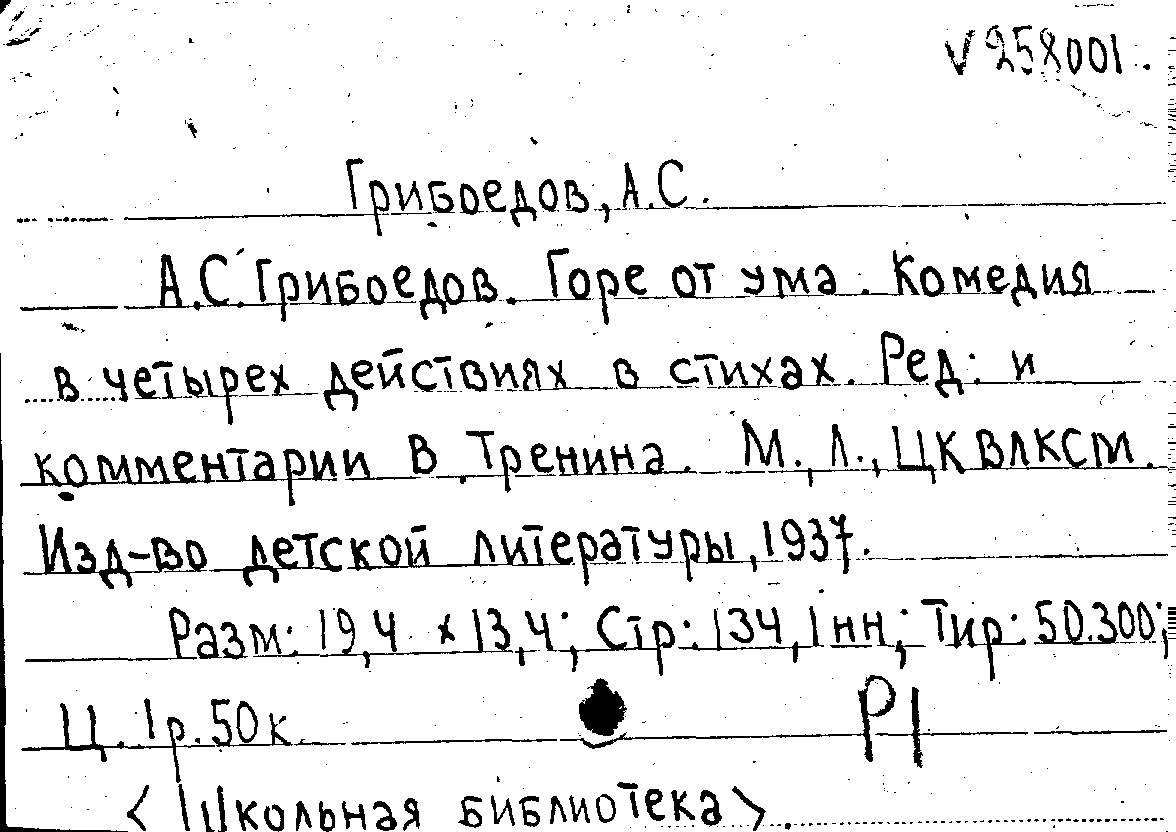 V 258001.
Грибоедов, А.С.
А.С. Грибоедов. Горе от ума. Комедия
в четырех действиях в стихах. Ред: и
комментарии В. Тренина. М., Л., ЦК ВЛКСМ.
Изд-во детской литературы, 1937.
Разм: 19,4 х 13,4; Стр: 134, 1 нн; Тир: 50.300;
Ц. 1р. 50к. Р1
< Школьная библиотека >.